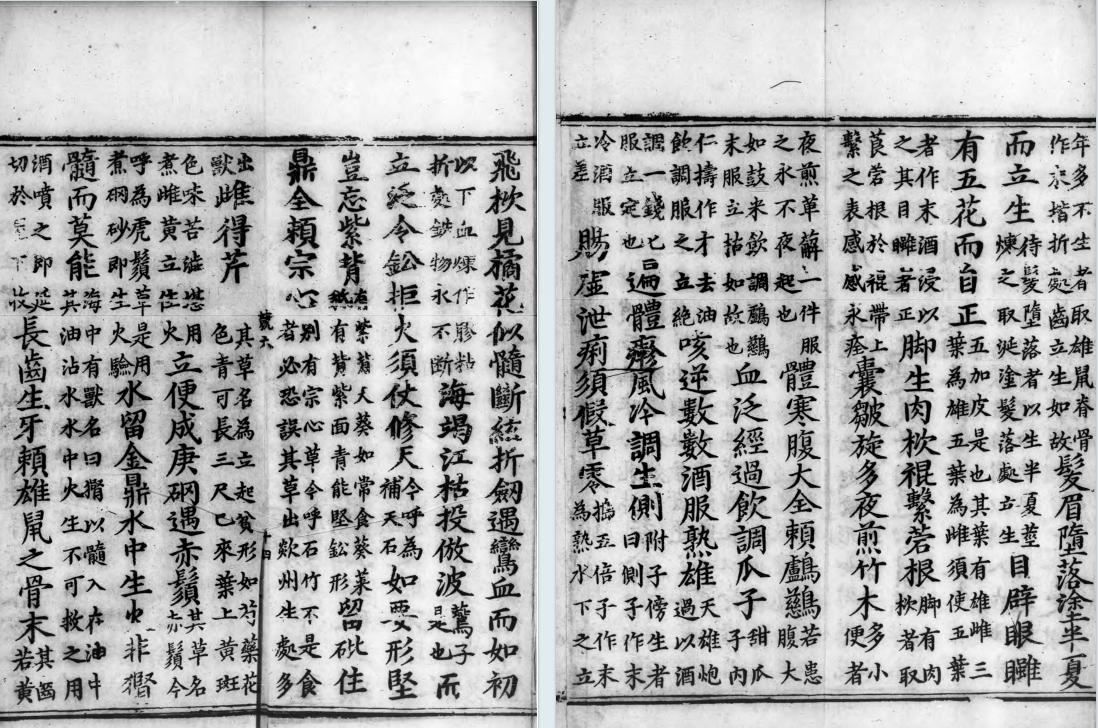 飛枕見橘花似髓斷絃折劒遇鸞血而如初
以下血煉作膠粘折處鐵物永不斷海竭江枯投倣波鷰子是也而
立泛令鈆拒火須仗修天今呼為補天石如要形堅
豈忘紫背有紫背天葵如常食葵菜秪有背紫面青能堅鈆形留砒住
鼎全頼宗心別有宗心草今呼石竹不是食者必恐誤其草出欻州生處多
出獸雌得芹其草名為立起芹形如芍藥花色青可長三尺已來葉上黃斑
色味苦澁堪用煮雌黃立住火立便成庚硇遇赤鬚其草名赤鬚今
呼為虎鬚草是用煮硇砂即生火驗水留金鼎水中生火非猾
髓而莫能海中有獸名曰猾以髓入在油中其油沾水水中火生不可救之用
酒噴之即延切於屋下收長齒生牙賴雄鼠之骨末其齒若黃
年多不生者取雄鼠脊骨作末揩折處齒立生如故髮眉墮落塗半夏
而立生煉之取涎塗髮落處立生侍髮墮落者以生半夏莖目辟眼䀮
有五花而自正五加皮是也其葉有雄雌三葉為雄五葉為雌須使五葉
者作末酒浸以之其目䀮者正脚生肉枕裩繫菪根脚有肉枕者取
莨菪根於裩帶上繫之表感感永痊囊皺旋多夜煎竹木多小便者
夜煎萆薢一件服之永不夜起也體寒腹大全賴鸕鷀若患腹大
如鼓米飲調鸕鷀末服立枯如故也血泛經過飲調瓜子甜瓜子內
仁擣作末去油飲調服之立絕咳逆數數酒服熟雄天雄炮過以酒
調一錢匕服立定也遍體癢風冷調生側附子傍生者曰側子作末
冷酒服立差腸虛泄痢須假草零擣五倍子作末為熱水下之立